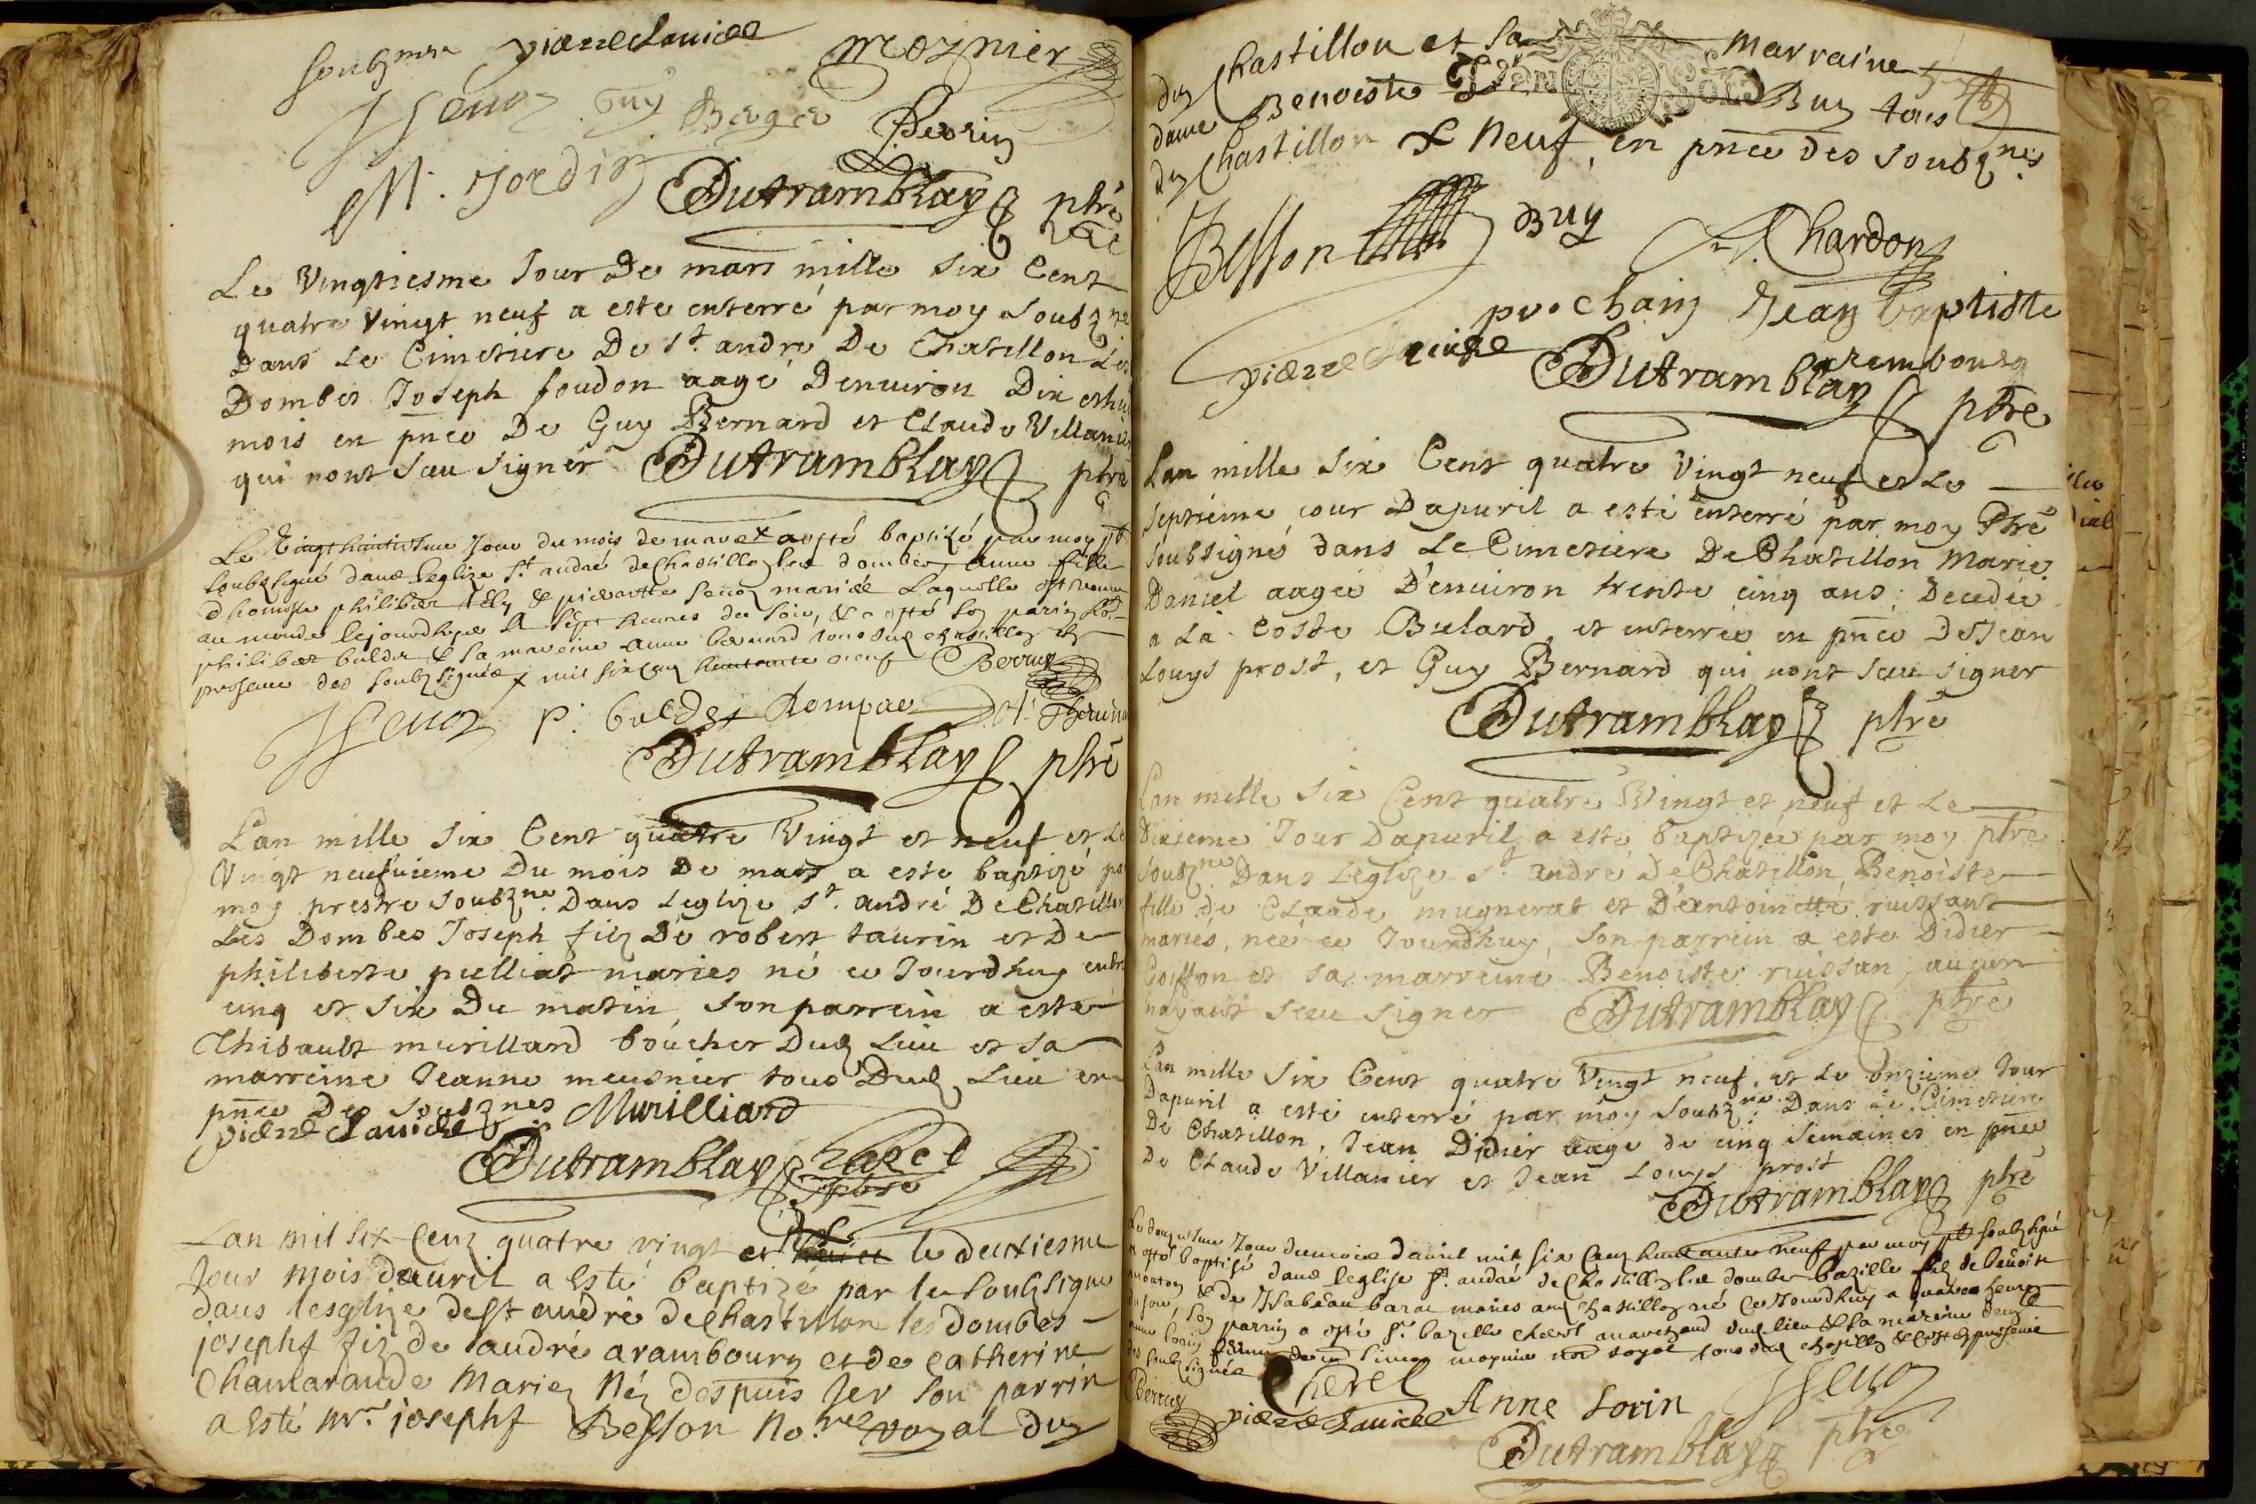 soubznes pierre Lauicee mognier
Guy Berger Perrin
M. Jordin Dutramblay ptre
vice
Le Vingtiesme Jour De mars mille six Cent
quatre Vingt neuf a este enterré par moy soubzné
Dans Le Cimetiere De st. andre De Chatillon Les
Dombes Joseph foudon aagé Denuiron Dix et huit
mois en pnce De Guy Bernard et Claude Villanier
qui nont sceu signer Dutramblay ptre
Le Vingt huitiesme Jour du mois de mars x a esté baptizé par moy pb
soubzsigné dans leglize st. andré de Chastillon les dombes, anne fille
d'honneste philiber & pierrette mariés Laquelle est venue
au monde lejourdhuy a sept heures du soir, & a esté son parin
philiber buldet & sa mareine anne bernard tous dud chastillon en
presence des soubzsignés x mil six cens huictante neuf Perrin
P. buldet Rompac
Dutramblay ptre
Lan mille six Cent quatre Vingt et neuf et Le
Vingt neufuieme Du mois De mars a este baptizé par
moy prestre soubzné Dans Leglize st. andré De Chatillon
Les Dombes Joseph filz De robert taurin et De
philiberte pelliat mariés né ce Jourdhuy entre
cinq et six Du matin, son parrein a este
Thibault murillard boucher Dud Lieu et sa
marreine Jeanne meusnier tous Dud Lieu en
pnce Des soubznes Murilliard
pierre Lauicee
Dutramblay ptre
Lan mil six Cenz quatre vingt et le deuxiesme
Jour mois dauril a esté baptize par le soubsigne
dans lesglize de st andré de Chastillon les dombes
josephf fiz de andré arambourg et de catherine
Chamarande Mariez Néz despuis Jer son parrin
a esté Mr. josephf Besson No.re royal duz
duz Chastillon et sa Marraine
dame Benoiste Buy tous
duz Chastillon & Neuf, en pnce des soubznes
Besson Buy Chardon
prochain Jean baptiste
pierre Lauicee arembourg
Dutramblay ptre
Lan mille six Cent quatre Vingt neuf et Le
septieme jour Dapuril a esté enterré par moy Ptre
soubsigné dans Le Cimetiere De Chatillon Marie
Daniel aagée D'enuiron trente cinq ans: Decedée
a La Coste Bulard, et enterrée en pnce De Jean
Louys prost, et Guy Bernard qui nont sceu signer
Dutramblay ptre
Lan mille six Cent quatre Vingt et neuf et Le
Dixieme Jour Dapuril a esté baptizée par moy ptre
soubzne Dans Leglize st. andré De Chatillon, Benoiste
fille de Claude mugnerat et D'antoinette ruissant
mariés, née ce Jourdhuy, son parrein a este Didier
Coiffon et sa marreine Benoiste ruissan, aucun
nayant sceu signer Dutramblay ptre
Lan mille six Cent quatre Vingt neuf. et Le onzieme Jour
Dapuril a esté enterré par moy soubzne Dans Le Cimetiere
De Chatillon, Jean Didier aage de cinq semaines en pnce
De Claude Villanier et Jean Louys prost
Dutramblay ptre
Le douziesme Jour dumois dauril mil six Cens huictante neuf par moy pb soubzsigné
a esté baptisé dans leglise st. andré de Chastillon les dombes bazille fils de benoist
mouton & de Jsabeau mariés aud Chastillon né ce Jourdhuy a quatre heures
du soir, son parrin a esté sr. bazille cherel marchand dud lieu & sa mareine damlle
anne lorin femme de Simon mognier nre royal tous dud chastillon & en presence
des soubzsignés Cherel
Perrin pierre Lauicee Anne Lorin
Dutramblay ptre